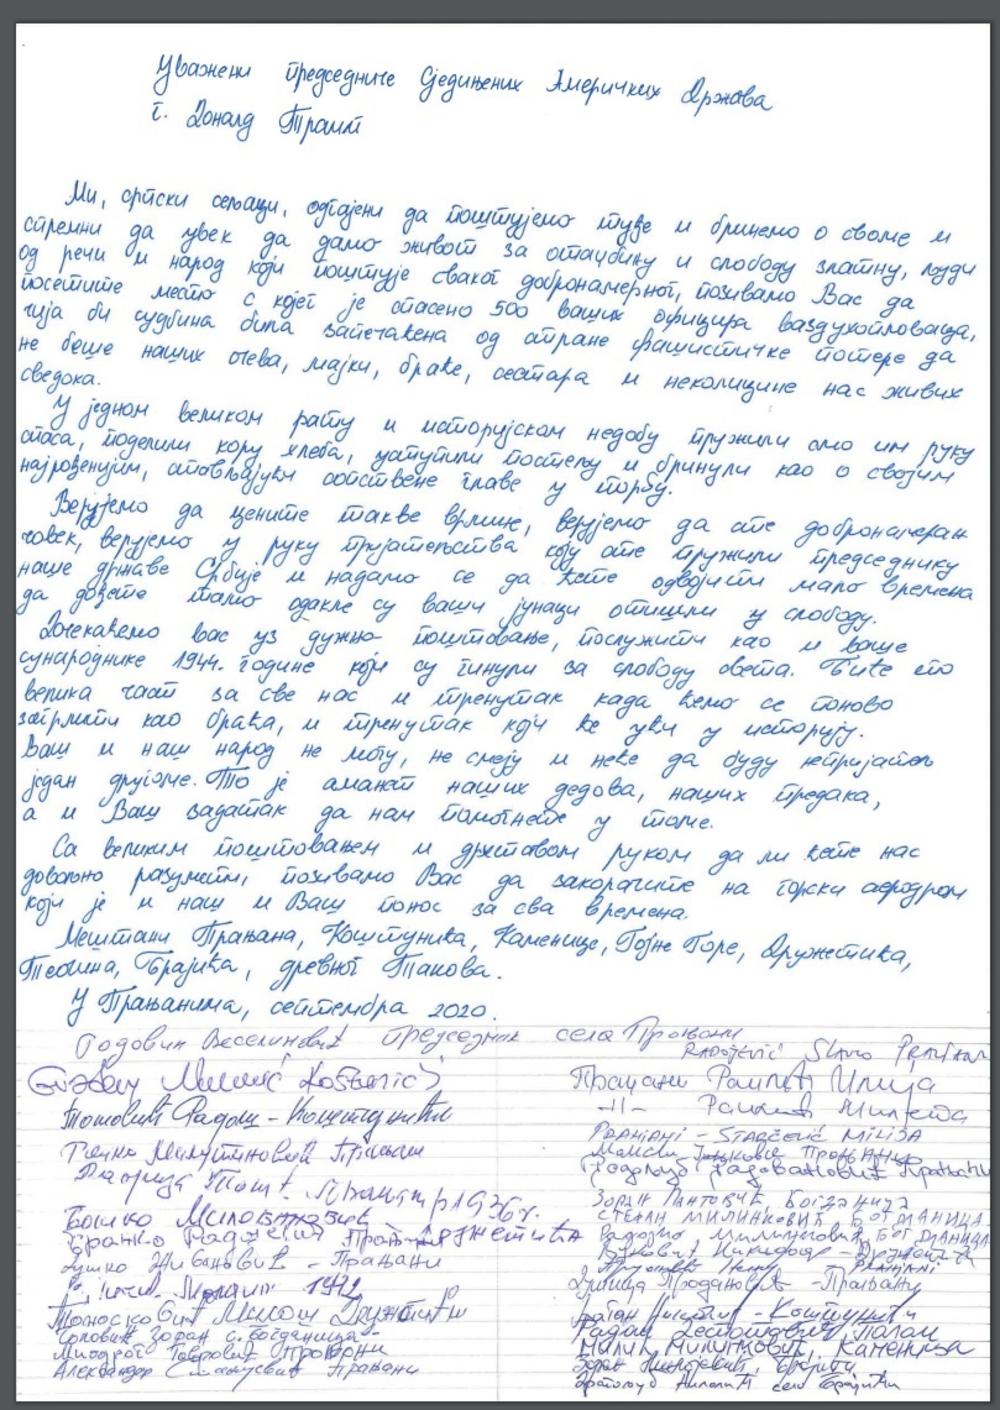 Уважени председниче Сједињених Америчких Држава
г. Доналд Трамп
Ми, српски сељаци, одгајени да поштујемо туђе и бринемо о своме и
спремни да увек да дамо живот за отаџбину и слободу златну, људи
од речи и народ који поштује сваког добронамерног, позивамо Вас да
посетите место с којег је спасено 500 ваших официра ваздухопловаца,
чија би судбина била запечаћена од стране фашистичке потере да
не беше наших очева, мајки, браће, сестара и неколицине нас живих
сведока.
У једном великом рату и историјском недобу пружили смо им руку
спаса, поделили кору хлеба, уступили постељу и бринули као о својим
најрођенијим, стављајући сопствене главе у торбу.
Верујемо да цените такве врлине, верујемо да сте добронамеран
човек, верујемо у руку пријатељства коју сте пружили председнику
наше државе Србије и надамо се да ћете одвојити мало времена
да дођете тамо одакле су ваши јунаци отишли у слободу.
Дочекаћемо вас уз дужно поштовање, послужити као и ваше
сународнике 1944. године који су гинули за слободу света. Биће то
велика част за све нас и тренутак када ћемо се поново
загрлити као браћа, и тренутак који ће ући у историју.
Ваш и наш народ не могу, не смеју и неће да буду непријатељ
један другоме. То је аманет наших дедова, наших предака,
а и Ваш задатак да нам помогнете у томе.
Са великим поштовањем и дрхтавом руком да ли ћете нас
довољно разумети, позивамо Вас да закорачите на горски аеродром
који је и наш и Ваш понос за сва времена.
Мештани Прањана, Коштунића, Каменице, Гојне Горе, Дружетића,
Теочина, Брајића, древног Такова.
У Прањанима, септембра 2020.
Веселиновић председник села Прањани
RADOJEVIĆ Slavo
Прањани Илија
Томовић Радош - Коштунићи
-11-
Милутиновић Прањани
PRANJANI - STARČEVIĆ MILIJA
1936г.
ЗОРАН ПАНТОВИЋ, БОГДАНИЦА
Бошко Миловановић
СТЕВАН МИЛИНКОВИЋ БОГДАНИЦА
Душко Живановић - Прањани
PRANJANI
Продановић - Прањани
Милош Дружетићи
- Коштунићи
Зоран с. Богданица
Миодраг Прањани
Каменица
Александар Прањани